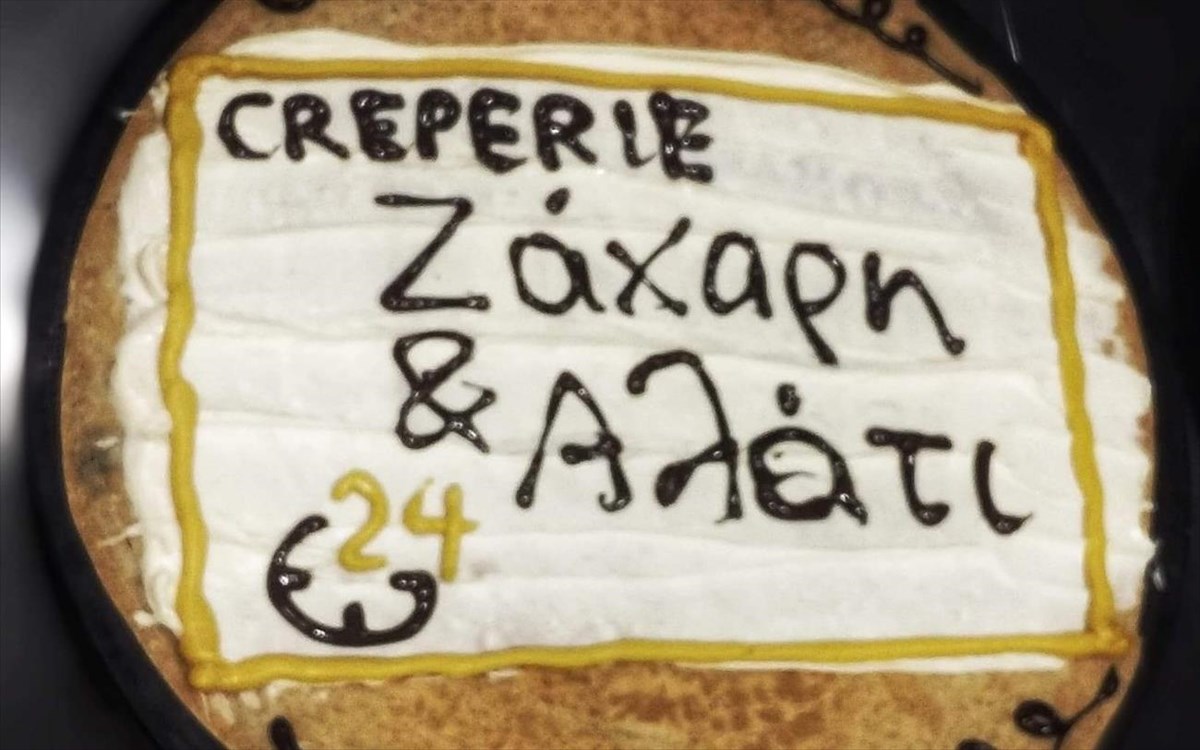 CREPERIE
Ζάχαρη
& Αλάτι
24